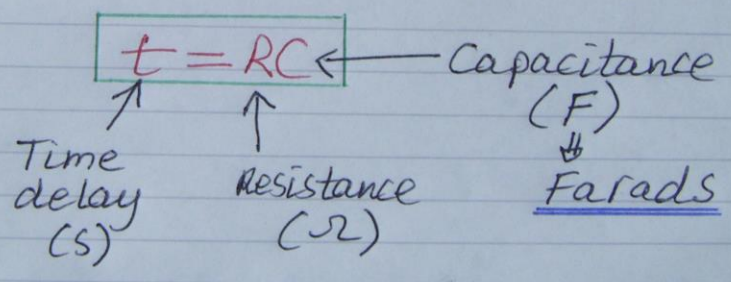 t = RC
Capacitance
(F)
Farads
Time
delay
(S)
Resistance
(Ω)